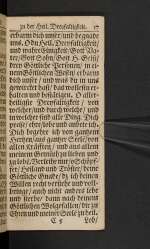 zu der Heil. Dreyfaltigkeit. 57
erbarm dich unser/ und begnade
uns. O du Heil. Dreyfaltigkeit/
und wahre Einigkeit/ Gott Vat-
ter/ Gott Sohn/ Gott H. Geist/
drey Göttliche Personen/ in ei-
nem Göttlichen Wesen/ erbarm
dich unser/ und was du in uns
gewercket hast/ das wollest in er-
halten und bestättigen. O aller-
heiligste Dreyfaltigkeit/ von
welcher/ und durch welche/ und
in welcher seind alle Ding. Dich
ehre/ dich lobe und anbete ich.
Dich begehre ich von gantzem
Hertzen/ aus gantzer Seele/ von
allen Kräfften/ und aus allem
meinem Gemüth zu lieben und
zu lobe/ Verleihe mir/ o Schöpf-
fer/ Heiland und Tröster/ deine
Göttliche Gnade/ dz ich deinen
Willen recht verstehe und voll-
bringe/ auch nicht anders lebe
und sterbe/ dann nach deinem
Göttlichen Wolgefallen/ dir zu
Ehren und meiner Seele zu heil.
C 5 Lob/